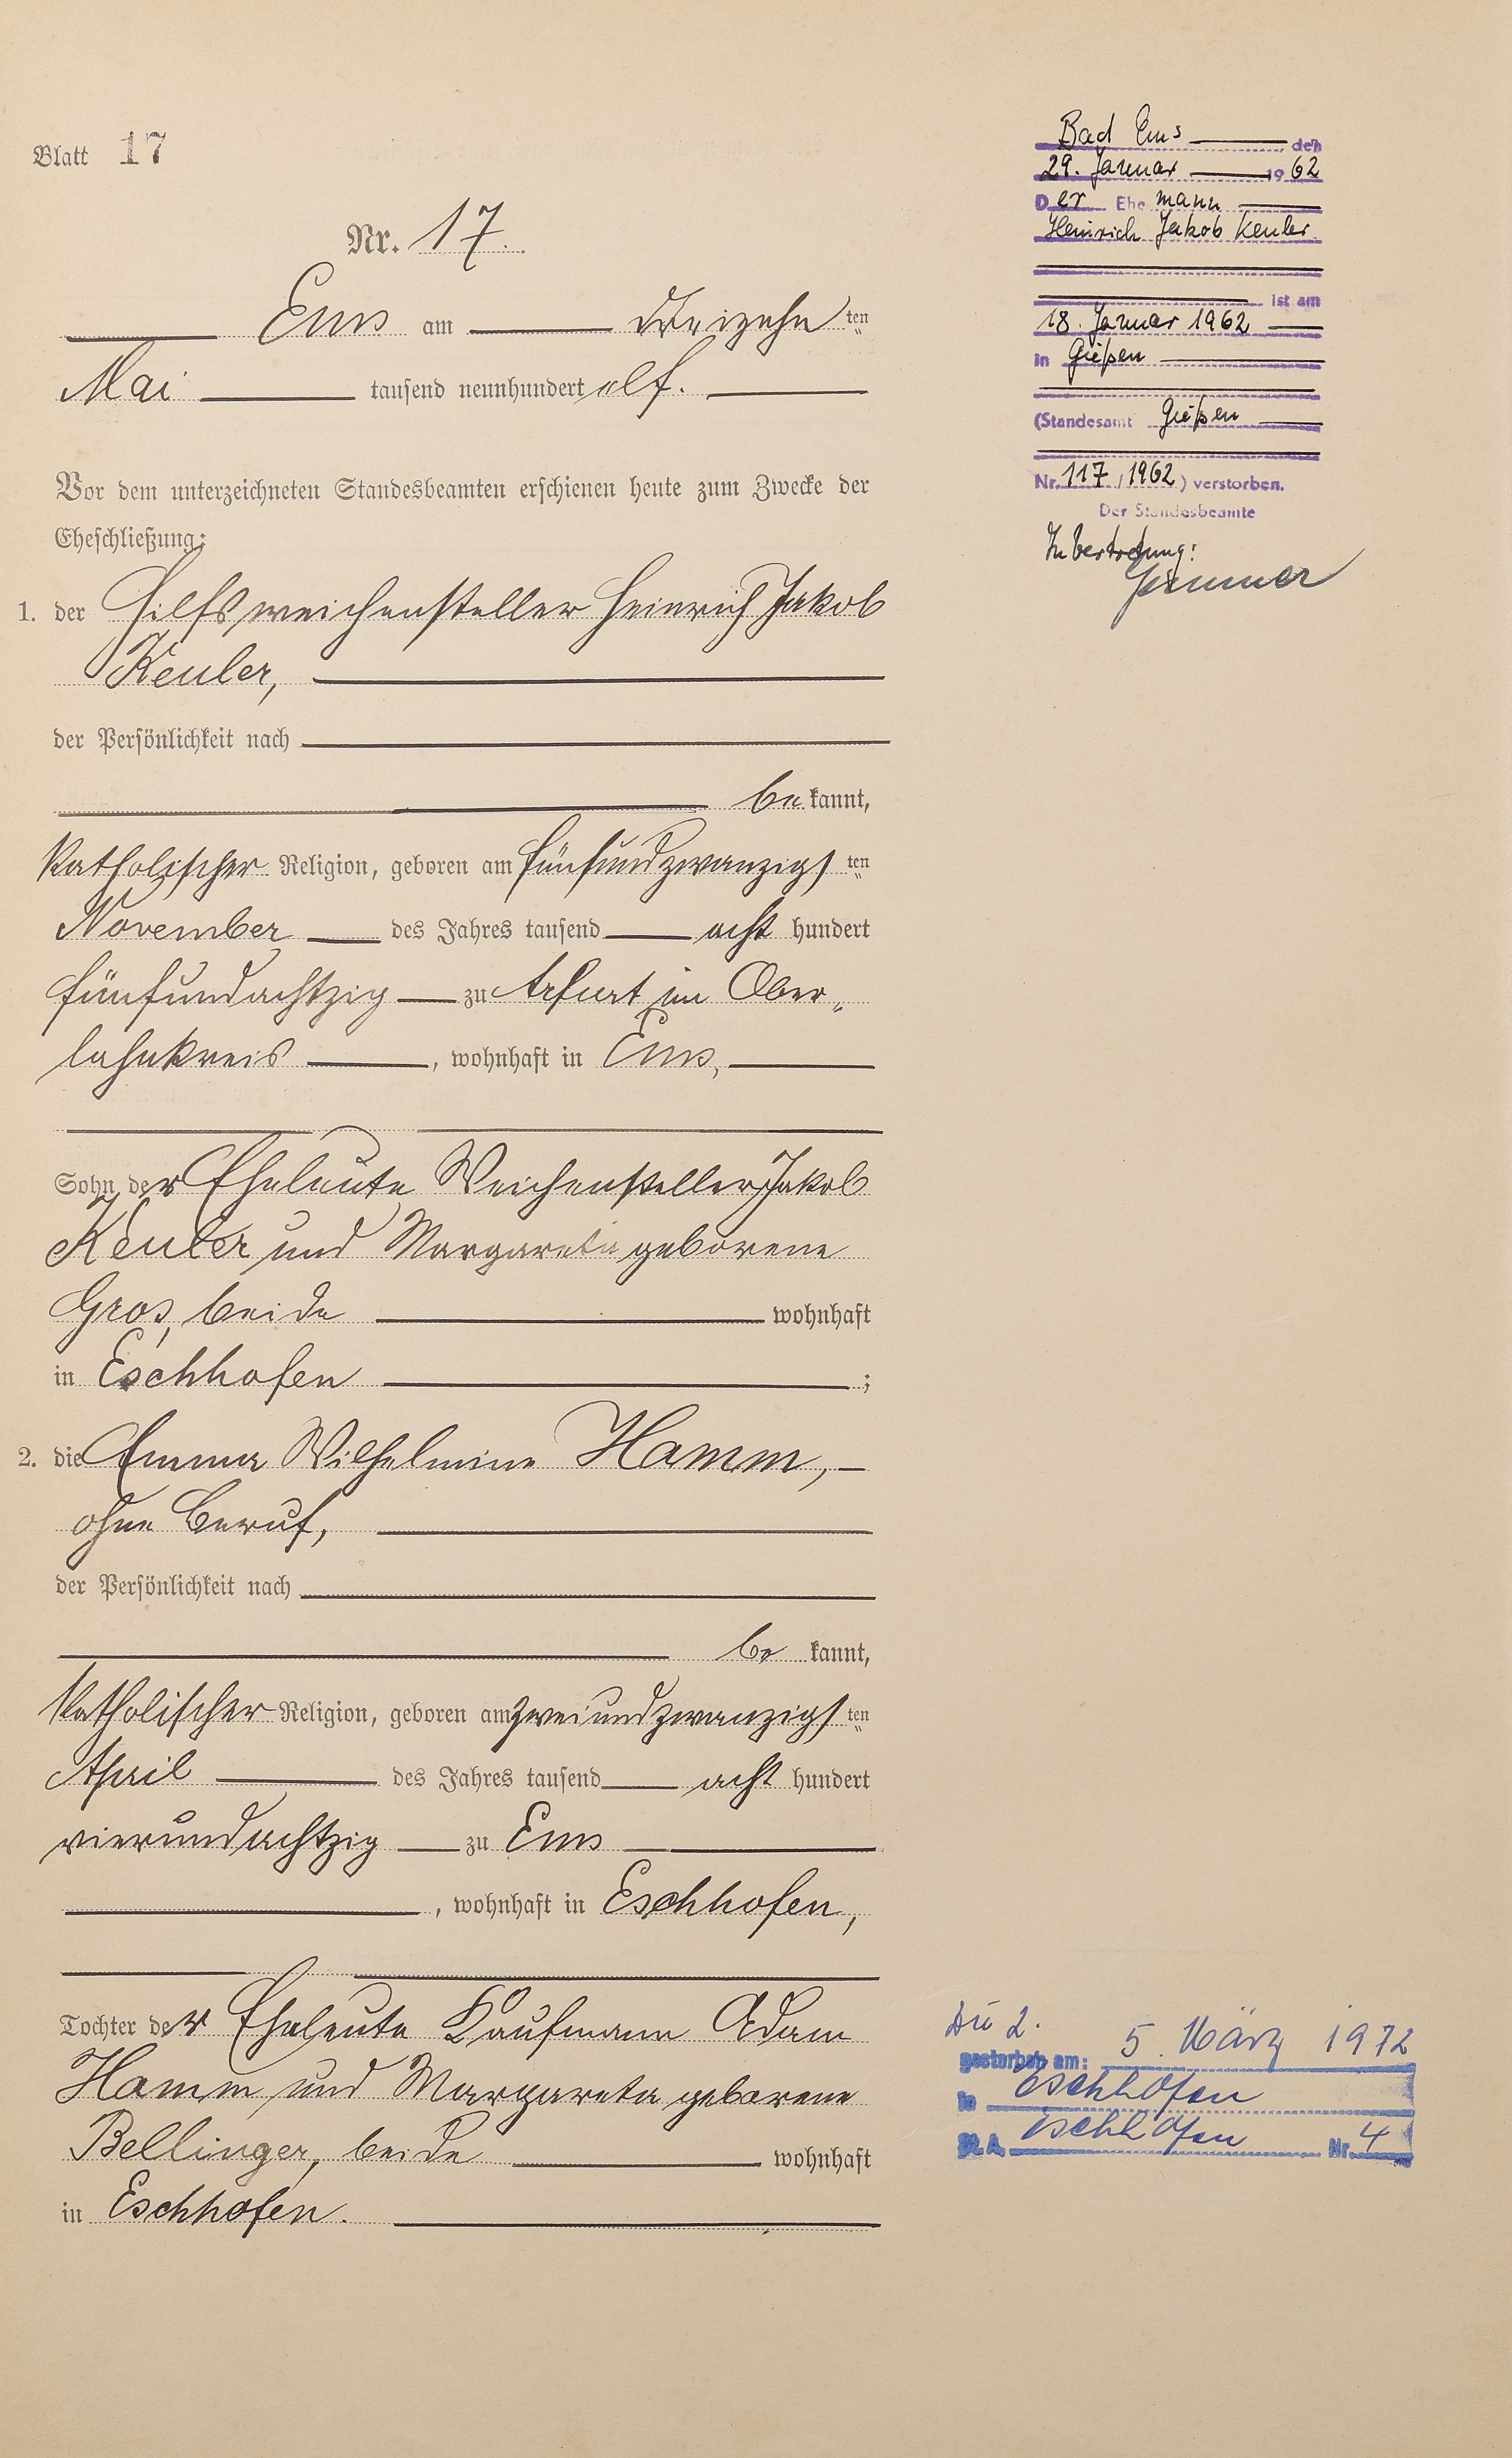 Blatt 17
Nr. 17.
Ems am dreizehnten
Mai tausend neunhundert elf.
Vor dem unterzeichneten Standesbeamten erschienen heute zum Zwecke der
Eheschließung:
1. der Hilfsweichensteller Heinrich Jakob
Keuler,
der Persönlichkeit nach
bekannt,
katholischer Religion, geboren am fünfundzwanzigsten
November des Jahres tausend acht hundert
fünfundachtzig zu Arfurt im Ober-
lahnkreis, wohnhaft in Ems,
Sohn der Eheleute Weichensteller Jakob
Keuler und Margareta geborene
Gros, beide wohnhaft
in Eschhofen;
2. die Emma Wilhelmine Hamm,
ohne Beruf,
der Persönlichkeit nach
bekannt,
katholischer Religion, geboren am zweiundzwanzigsten
April des Jahres tausend acht hundert
vierundachtzig zu Ems
, wohnhaft in Eschhofen,
Tochter der Eheleute Kaufmann Adam
Hamm und Margareta geborene
Bellinger, beide wohnhaft
in Eschhofen.
Bad Ems, den
29. Januar 1962
Der Ehemann
Heinrich Jakob Keuler
ist am
18. Januar 1962
in Gießen
(Standesamt Gießen
Nr. 117/1962) verstorben.
Der Standesbeamte
In Vertretung:
Die 2.
gestorben am: 5. März 1972
in Eschhofen
St. A. Eschhofen Nr. 4